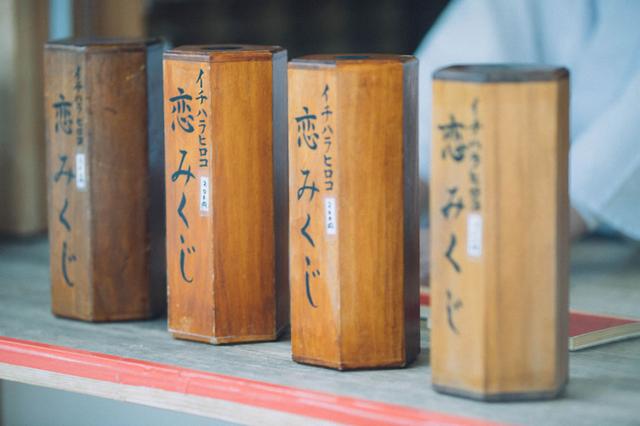 イチハラヒロコ
恋みくじ
イチハラヒロコ
恋みくじ
イチハラヒロコ
恋みくじ
イチハラヒロコ
恋みくじ